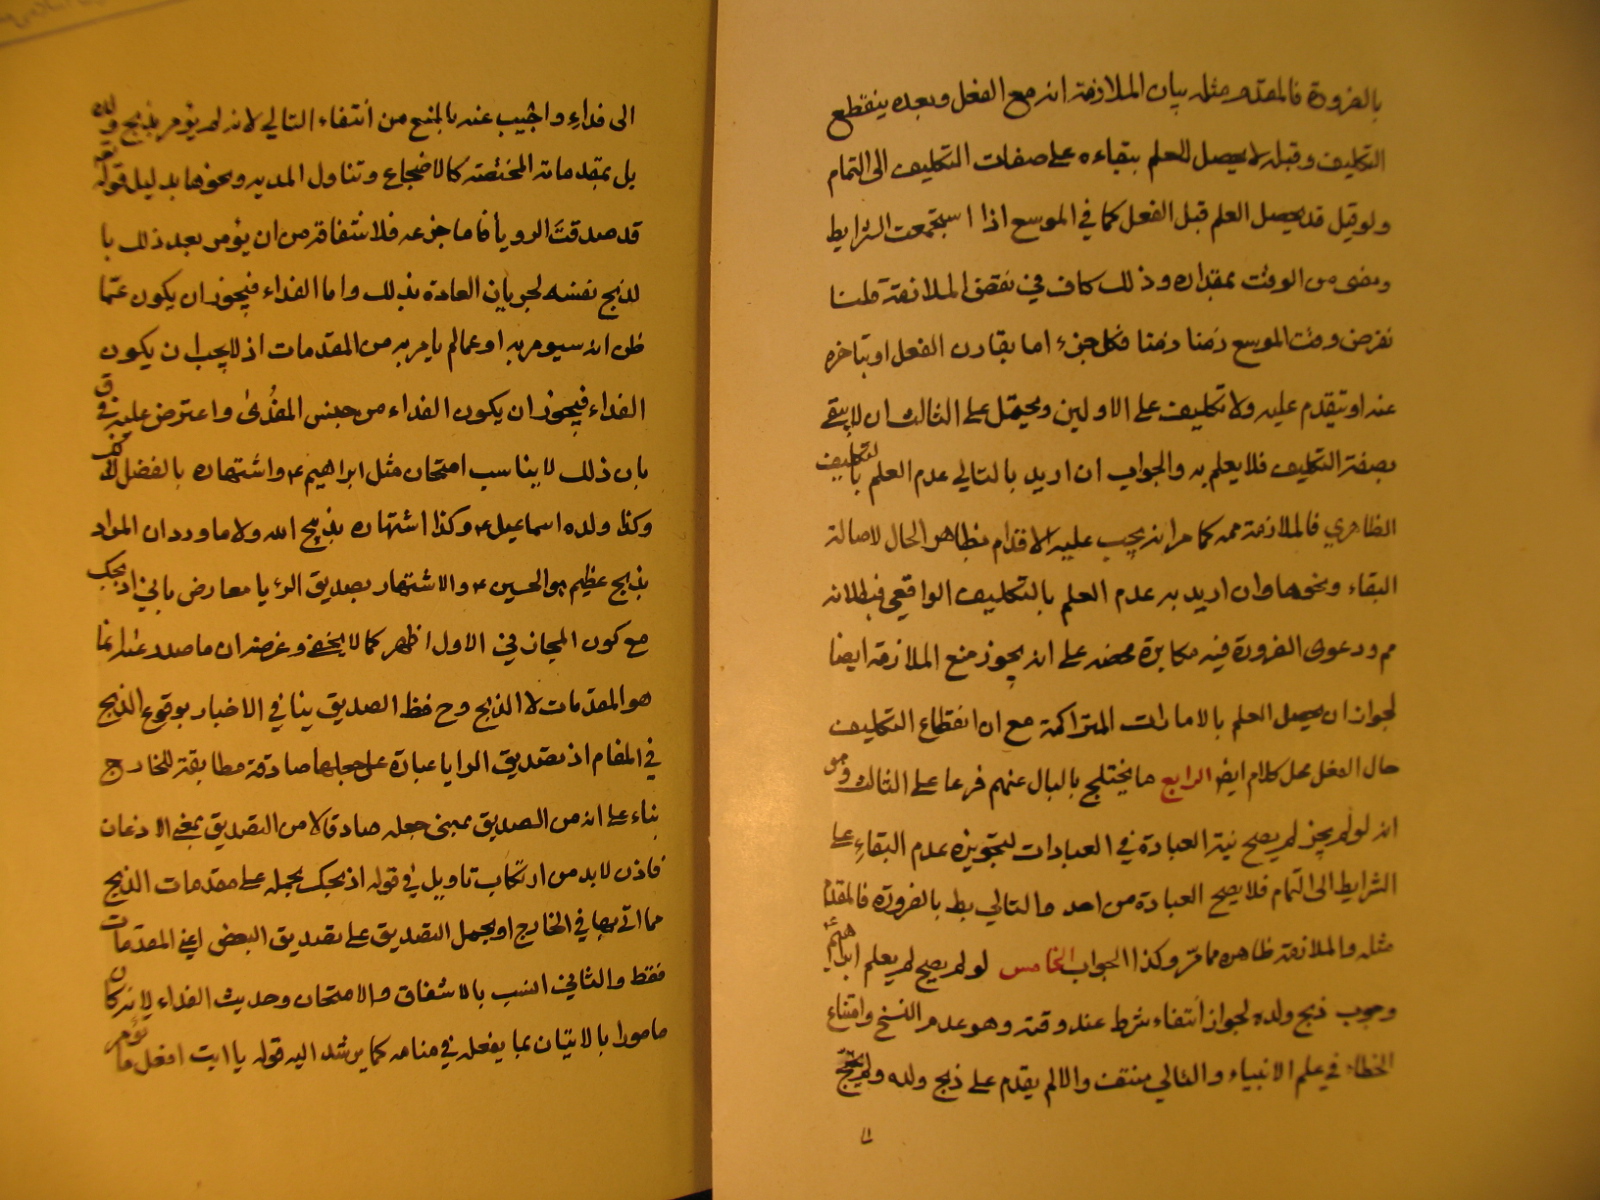 بالضرورة فالمقدم مثله بيان الملازمة انه مع الفعل وبعده ينقطع
التكليف وقبله لا يحصل العلم ببقاءه على صفات التكليف الى التمام
ولو قيل قد يحصل العلم قبل الفعل كما في الموسع اذا استجمعت الشرايط
ومضى من الوقت بمقداره وذلك كاف في نقض الملازمة قلنا
نفرض وقت الموسع زمنا زمنا فكل جزء اما يقارن الفعل او يتاخره
عنه او يتقدم عليه ولا تكليف على الاولين ويحتمل على الثالث ان لا يبقى
بصفة التكليف فلا يعلم به والجواب ان اريد بالتالي عدم العلم بالتكليف
الظاهري فالملازمة ممه كما مر انه يجب عليه الاقدام بظاهر الحال لاصالة
البقاء ونحوها وان اريد به عدم العلم بالتكليف الواقعي فبطلانه
مم ودعوى الضرورة فيه مكابرة محضه على انه يجوز منع الملازمة ايضا
لجواز ان يحصل العلم بالامارات المتراكمة مع ان انقطاع التكليف
حال الفعل محل كلام ايض الرابع ما يختلج بالبال عنهم فرعا على الثالث وهو
انه لو لم يجز لم يصح نية العبادة في العبادات لتجويزه عدم البقاء على
الشرايط الى التمام فلا يصح العبادة من احد والتالي بط بالضرورة فالمقدم
مثله والملازمة ظاهره مما مر وكذا الجواب الخامس لو لم يصح لم يعلم ابراهيم
وجوب ذبح ولده لجواز انتفاء شرط عند وقته وهو عدم النسخ وامتناع
الخطاء في علم الانبياء والتالي منتف والا لم يقدم على ذبح ولده ولم يحتج
الى فداء واجيب عنه بالمنع من انتفاء التالي لانه لم يؤمر بذبح ولده
بل بمقدماته المختصة كالاضجاع وتناول المديه ونحوها بدليل قوله تعه
قد صدقت الرويا فاما جزعه فلاشفاقه من ان يؤمر بعد ذلك با
لذبح نفسه لجريان العادة بذلك واما الفداء فيجوز ان يكون عما
ظن انه سيومر به او عما لم يامر به من المقدمات اذ لا يجب ان يكون
الفداء فيجوز ان يكون الفداء من جنس المفدى واعترض عليه في ق
بان ذلك لا يناسب امتحان مثل ابراهيم ع واشتهاره بالفضل لذلك
وكذا ولده اسماعيل ع وكذا اشتهاره بذبيح الله ولا ما ورد ان المراد
بذبح عظيم هو الحسين ع والاشتهار بصديق الرؤيا معارض باني اذبحك
مع كون المجاز في الاول اظهر كما لا يخفى وغرضه ان ما صدر عنه انما
هو المقدمات لا الذبح وح فظ الصديق ينافي الاخبار بوقوع الذبح
في المقام اذ تصديق الرايا عبارة على جعلها صادقة مطابقة للخارج
بناء على انه من الصديق بمبنى جعله صادقا لا من التصديق بمعنى الاذعان
فاذن لا بد من ارتكاب تاويل في قوله اذبحك بحمله على مقدمات الذبح
مما اتى بها في الخارج او يحمل التصديق على تصديق البعض اعني المقدمات
فقط والثاني انسب بالاشفاق والامتحان وحديث الفداء لانه كان
مامورا بالاتيان بما يفعله في منامه كما يرشد اليه قوله يا ابت افعل ما تؤمر